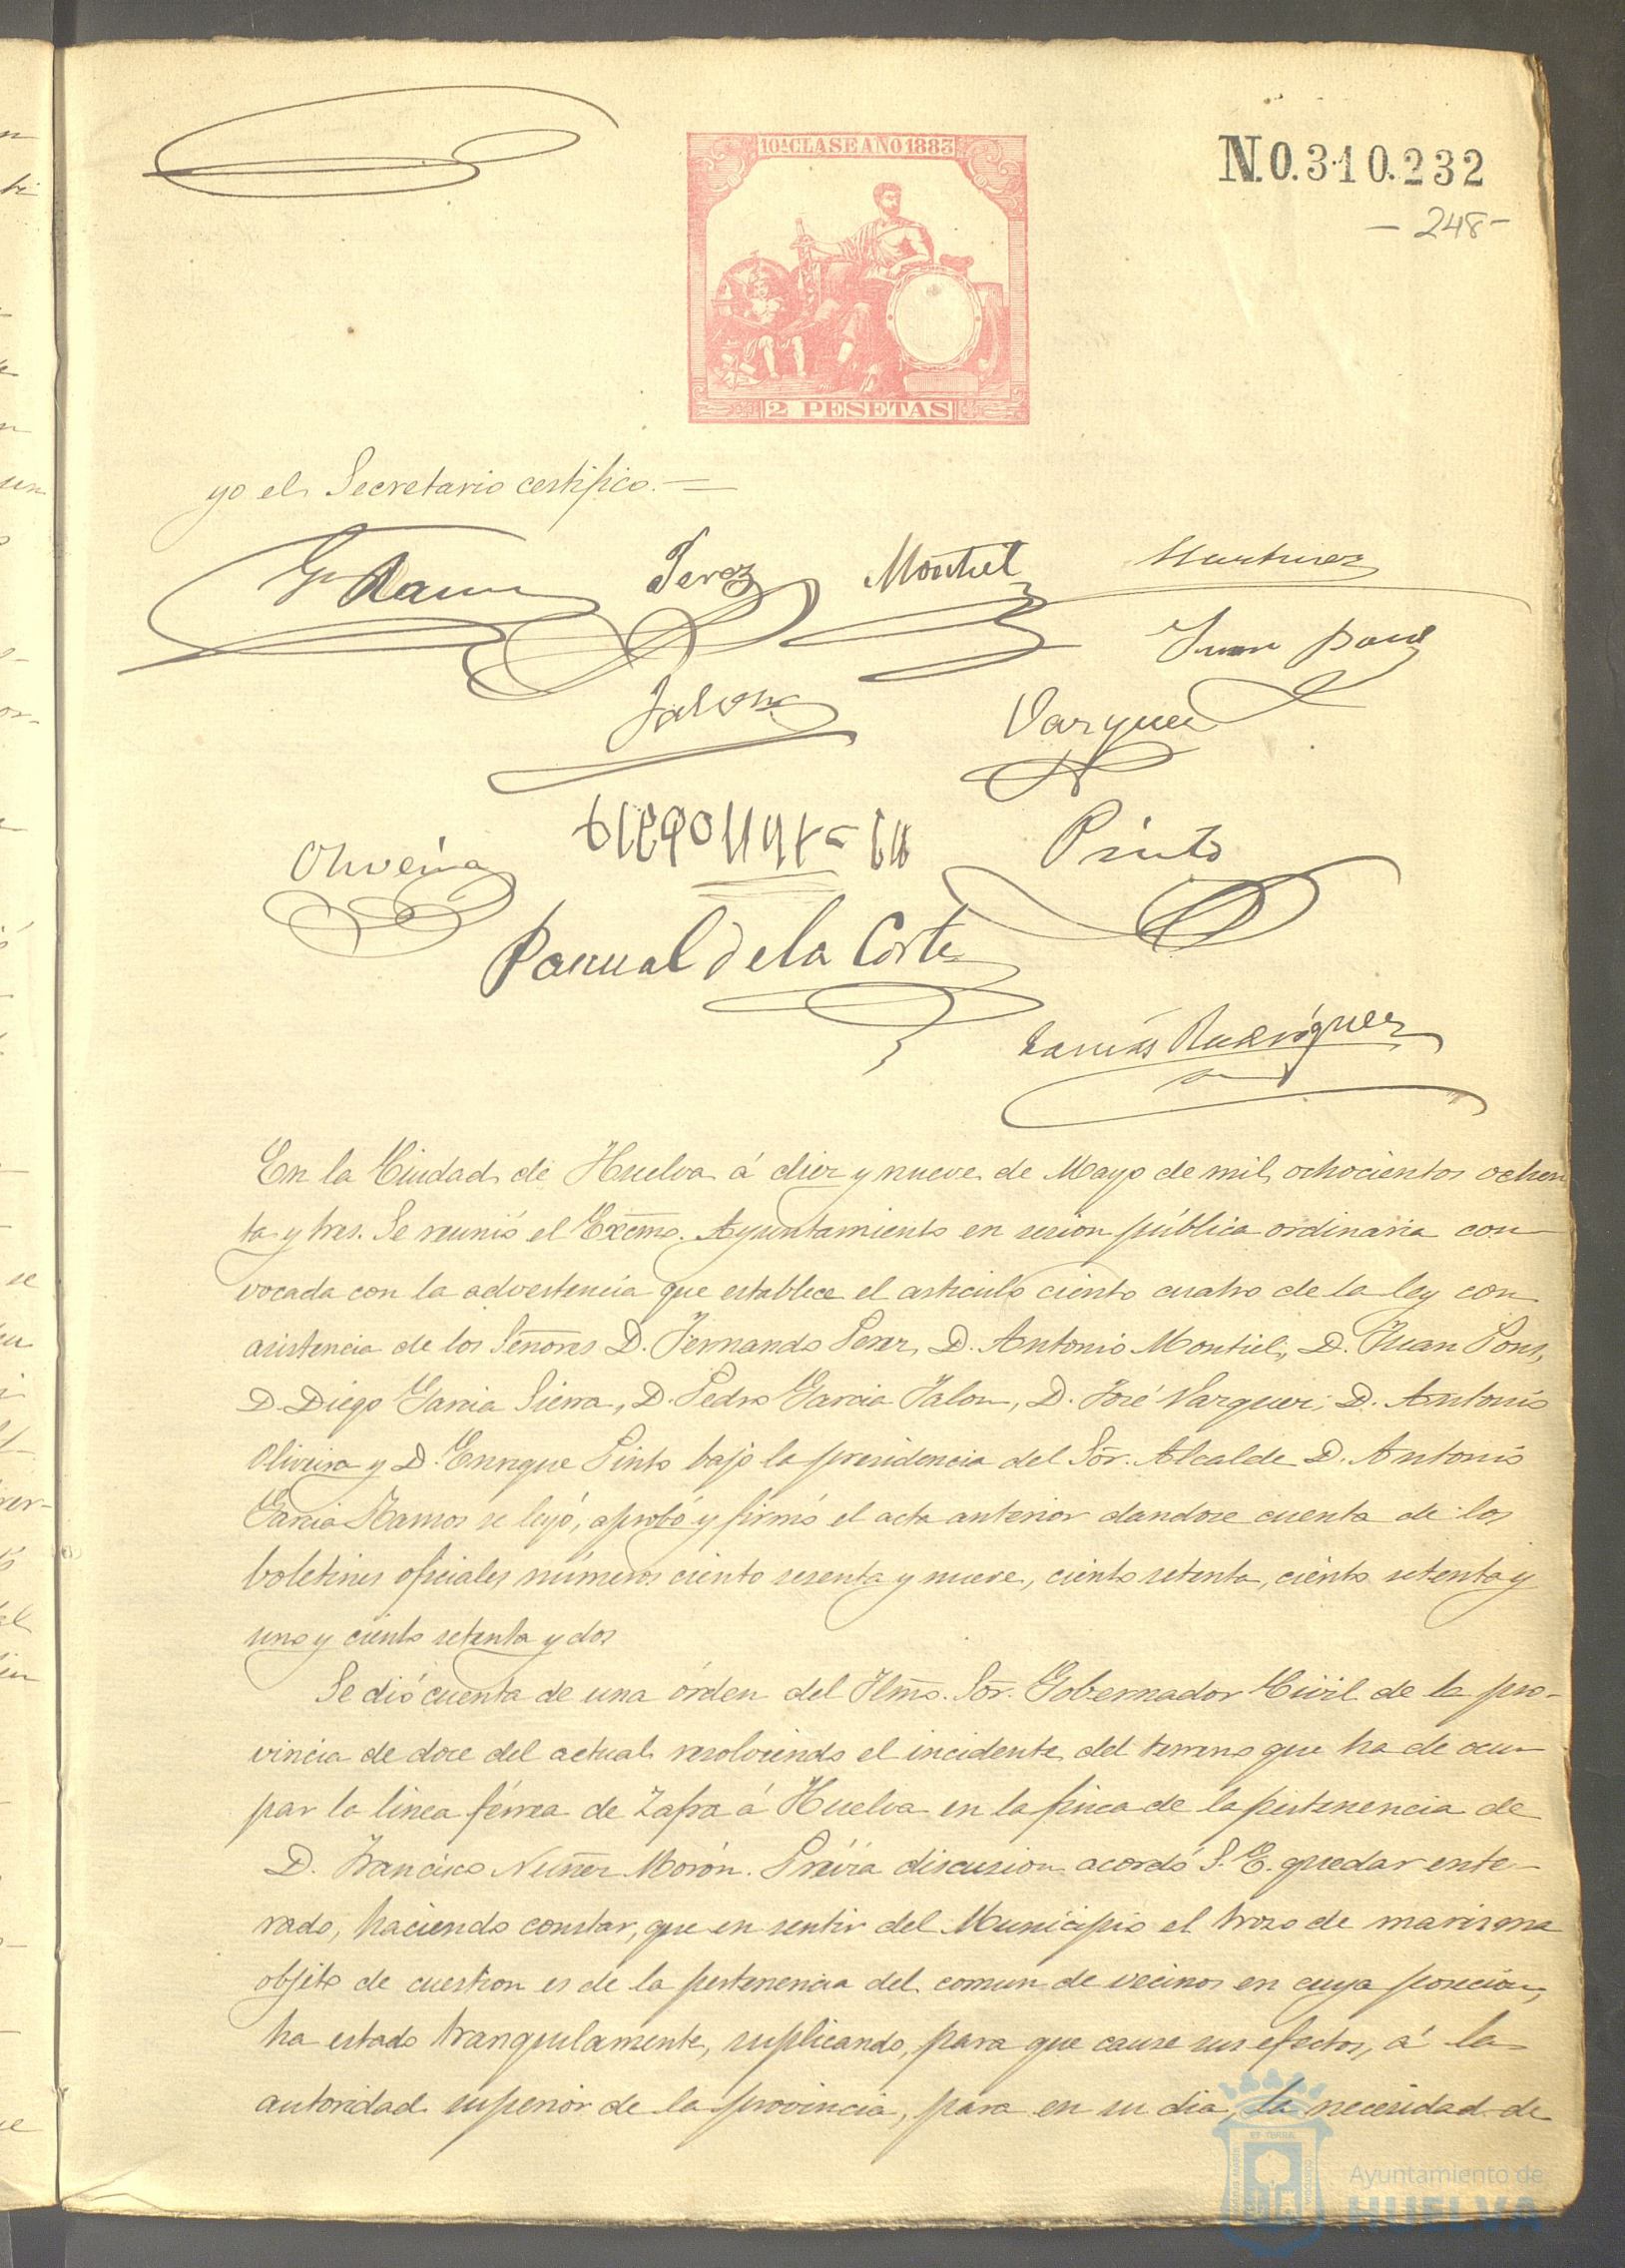 10ª CLASE AÑO 1883
N.0.310.232
- 248 -
2 PESETAS
yo el Secretario certifico. =
Gª Ramos
Perez
Montiel
Martinez
Juan Pons
Jalon
Vazquez
Oliveira
Pinto
Pascual de la Corte
Tomás Rodriguez
En la Ciudad de Huelva á diez y nueve de Mayo de mil ochocientos ochen
ta y tres. Se reunió el Excmo. Ayuntamiento en sesion pública ordinaria con
vocada con la advertencia que establece el articulo ciento cuatro de la ley con
asistencia de los Señores D. Fernando Perez, D. Antonio Montiel, D. Juan Pons,
D. Diego Garcia Sierra, D. Pedro Garcia Jalon, D. José Vazquez, D. Antonio
Oliveira y D. Enrique Pinto bajo la presidencia del Sor. Alcalde D. Antonio
Garcia Ramos se leyó, aprobó y firmó el acta anterior dandose cuenta de los
boletines oficiales números ciento sesenta y nueve, ciento setenta, ciento setenta y
uno y ciento setenta y dos
Se dió cuenta de una órden del Ilmo. Sor. Gobernador Civil de la pro-
vincia de doce del actual resolviendo el incidente del terreno que ha de ocu-
par la linea férrea de Zafra á Huelva en la finca de la pertenencia de
D. Francisco Nuñez Morón. Prévia discusion acordó S. E. quedar ente-
rado, haciendo constar, que en sentir del Municipio el trozo de marisma
objeto de cuestion es de la pertenencia del comun de vecinos en cuya posecion,
ha estado tranquilamente, suplicando, para que cause sus efectos, á la
autoridad superior de la provincia, para en su dia, la necesidad de
Ayuntamiento de
HUELVA